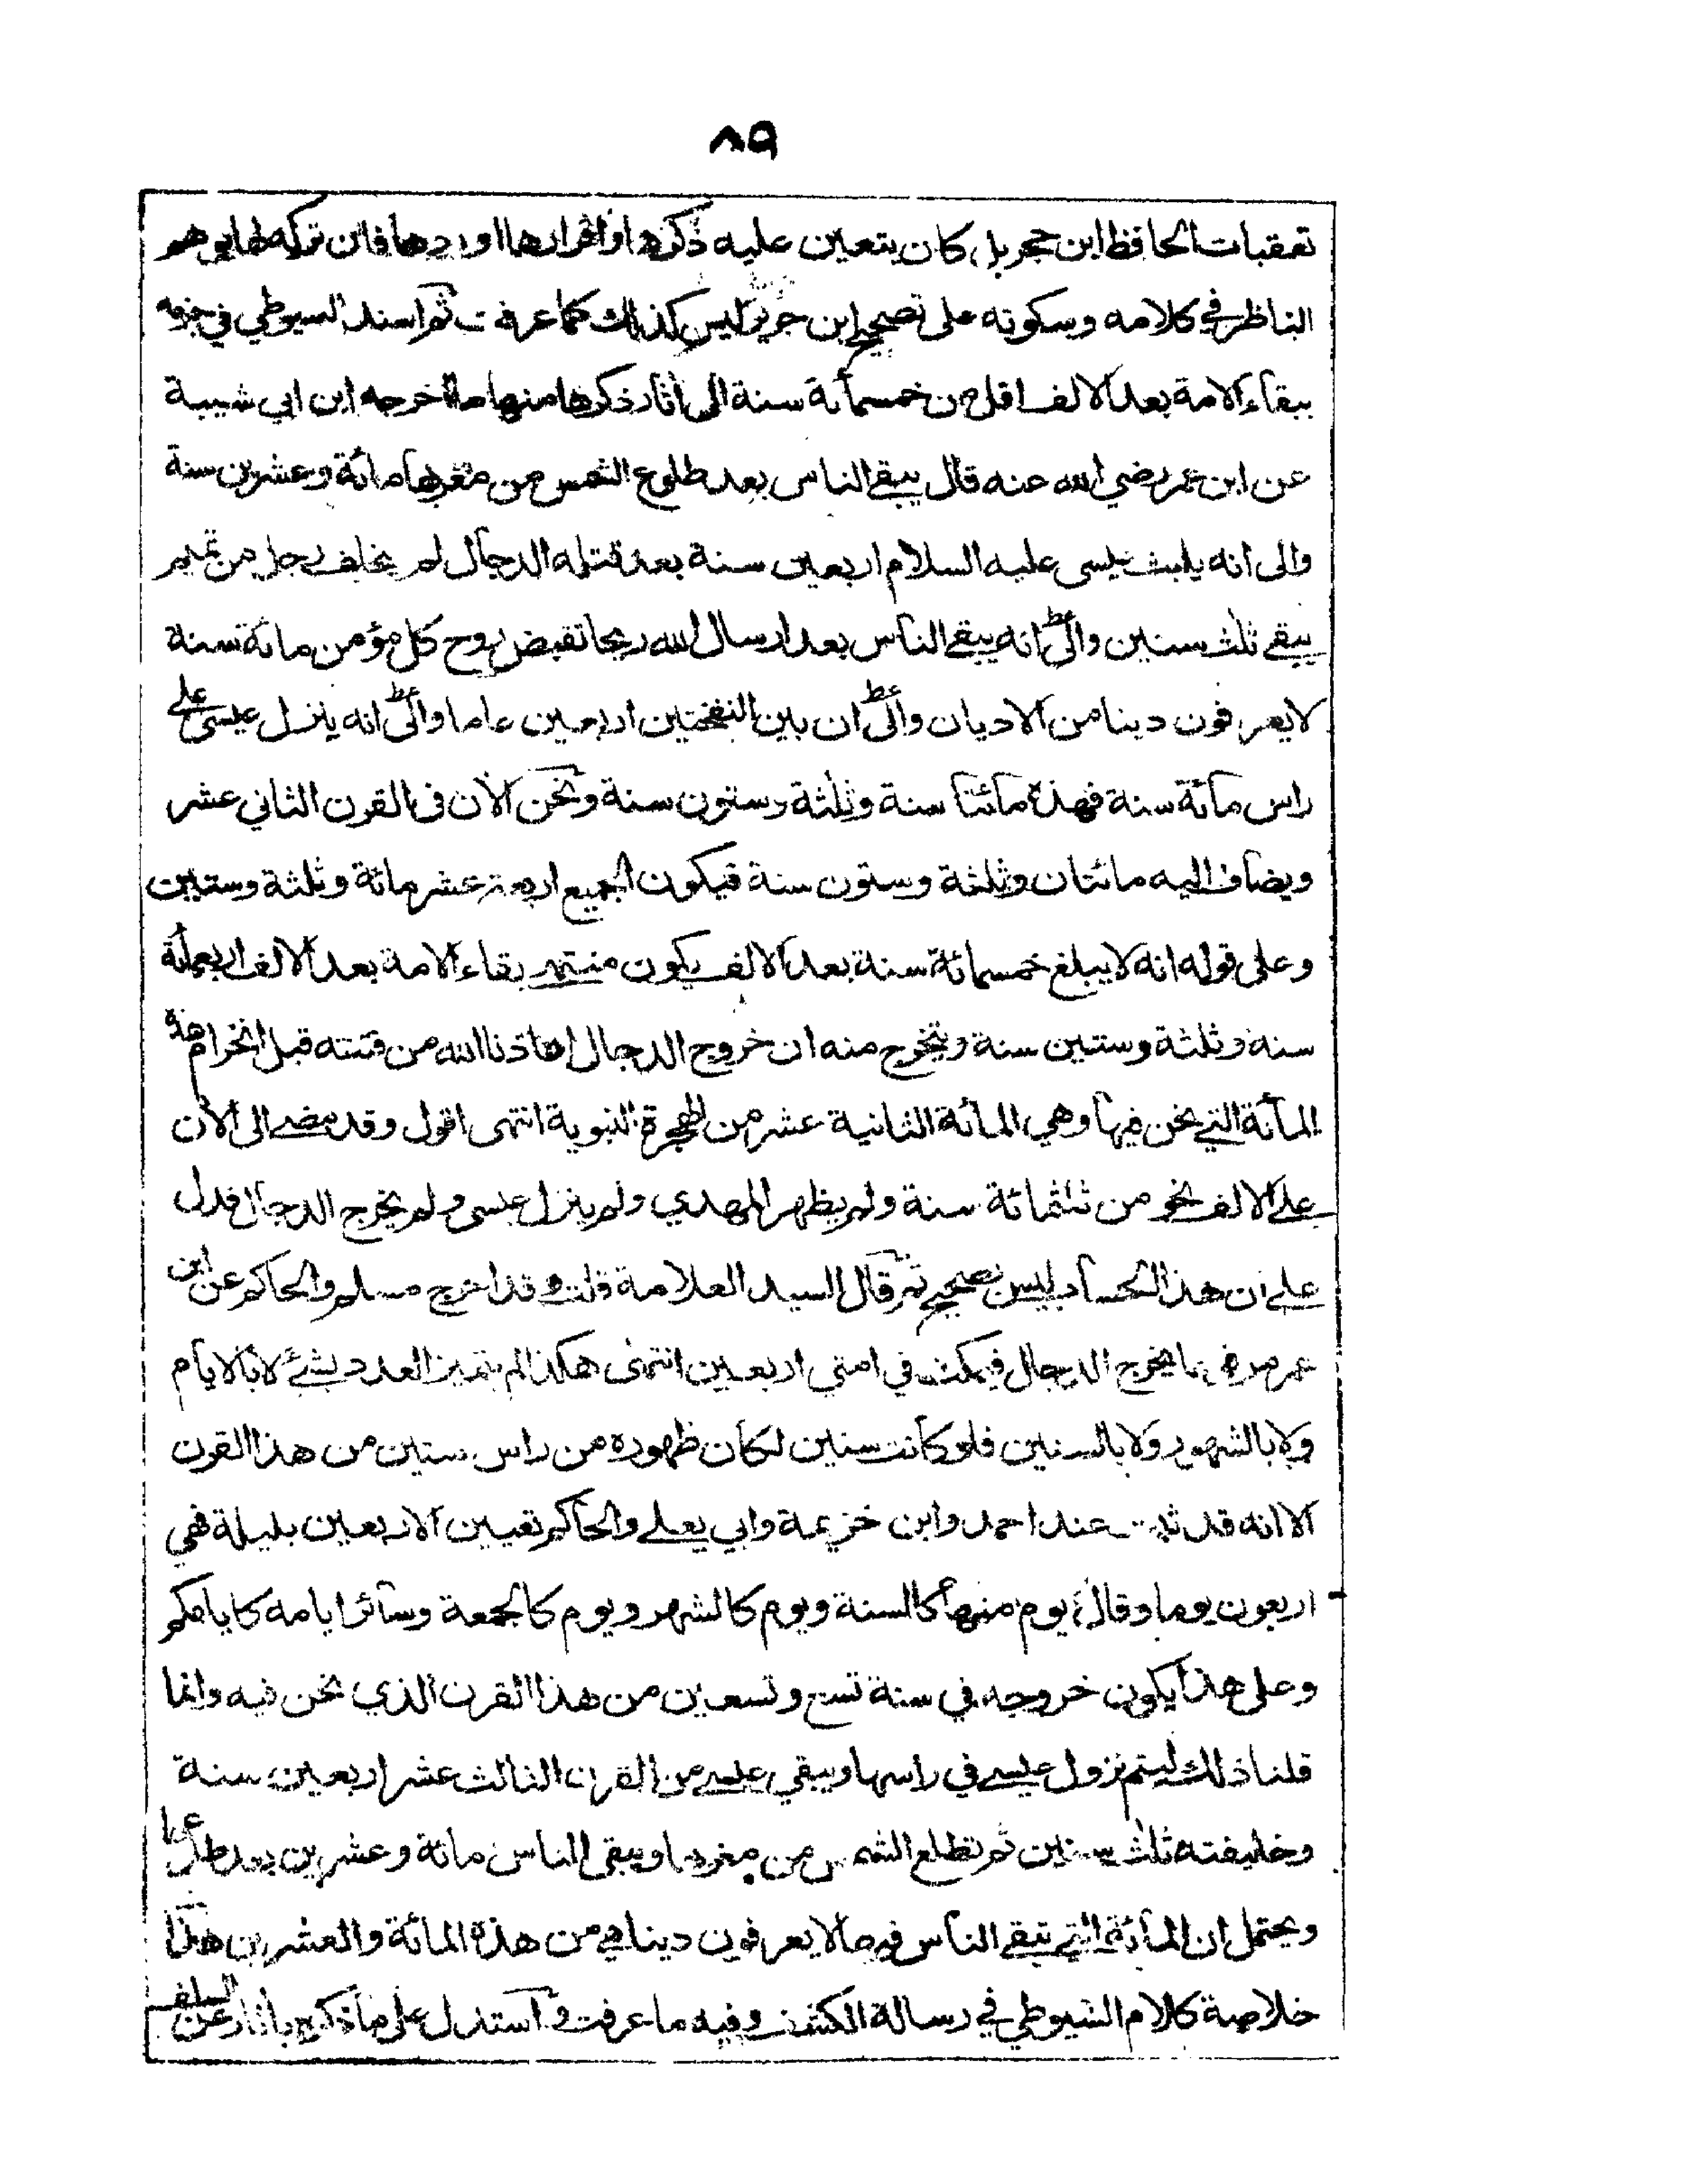 ٨٩
تعقبات الحافظ ابن حجر بل كان يتعين عليه ذكرها واقرارها اوردها فان تركه لها يوهم
الناظر في كلامه وسكوته على تصحيح ابن جرير ليس كذلك كما عرفت ثم اسند السيوطي في جزمه
ببقاء الامة بعد الالف اقل من خمسمأئة سنة الى اثار ذكرها منها ما اخرجه ابن ابي شيبة
عن ابن عمر رضي الله عنه قال يبقى الناس بعد طلوع الشمس من مغربها مائة وعشرين سنة
والى انه يلبث عيسى عليه السلام اربعين سنة بعد قتله الدجال ثم يخلف رجل من تميم
يبقى ثلث سنين والى انه يبقى الناس بعد ارسال الله ريحا تقبض روح كل مؤمن مائة سنة
لا يعرفون دينا من الاديان والى ان بين النفختين اربعين عاما والى انه ينزل عيسى على
راس مائة سنة فهذه مائتا سنة وثلثة وستون سنة ونحن الآن في القرن الثاني عشر
ويضاف اليه مائتان وثلثة وستون سنة فيكون الجميع اربعة عشر مائة وثلثة وستين
وعلى قوله انه لا يبلغ خمسمائة سنة بعد الالف يكون منتهى بقاء الامة بعد الالف اربعمائة
سنة وثلثة وستين سنة ويتخرج منه ان خروج الدجال اعاذنا الله من فتنته قبل انخرام هذه
المأئة التي نحن فيها وهي المائة الثانية عشر من الهجرة النبوية انتهى اقول وقد مضى الى الآن
على الالف نحو من ثلثمائة سنة ولم يظهر المهدي ولم ينزل عيسى ولم يخرج الدجال فدل
على ان هذا الحساب ليس بصحيح ثم قال السيد العلامة قلت وقد اخرج مسلم والحاكم عن ابن
عمر مرفوعا يخرج الدجال فيمكث في امتي اربعين انتهى هكذا لم يتميز العدد بشئ لا بالايام
ولا بالشهور ولا بالسنين فلو كانت سنين لكان ظهوره من راس ستين من هذا القرن
الا انه قد ثبت عند احمد وابن خزيمة وابي يعلى والحاكم تعيين الاربعين بليلة في
اربعون يوما وقال يوم منها كالسنة ويوم كالشهر ويوم كالجمعة وسائر ايامه كايامكم
وعلى هذا يكون خروجه في سنة تسع وتسعين من هذا القرن الذي نحن فيه وانما
قلنا ذلك ليتم نزول عيسى في راسها ويبقى عيسى من القرن الثالث عشر اربعين سنة
وخليفته ثلث سنين ثم تطلع الشمس من مغربها ويبقى الناس مائة وعشرين بعد طلوعها
ويحتمل ان المائة التي تبقى الناس فيها لا يعرفون دينا هي من هذه المائة والعشرين هذا
خلاصة كلام السيوطي في رسالة الكشف وفيه ما عرفت واستدل على ما ذكره باثار عن السلف